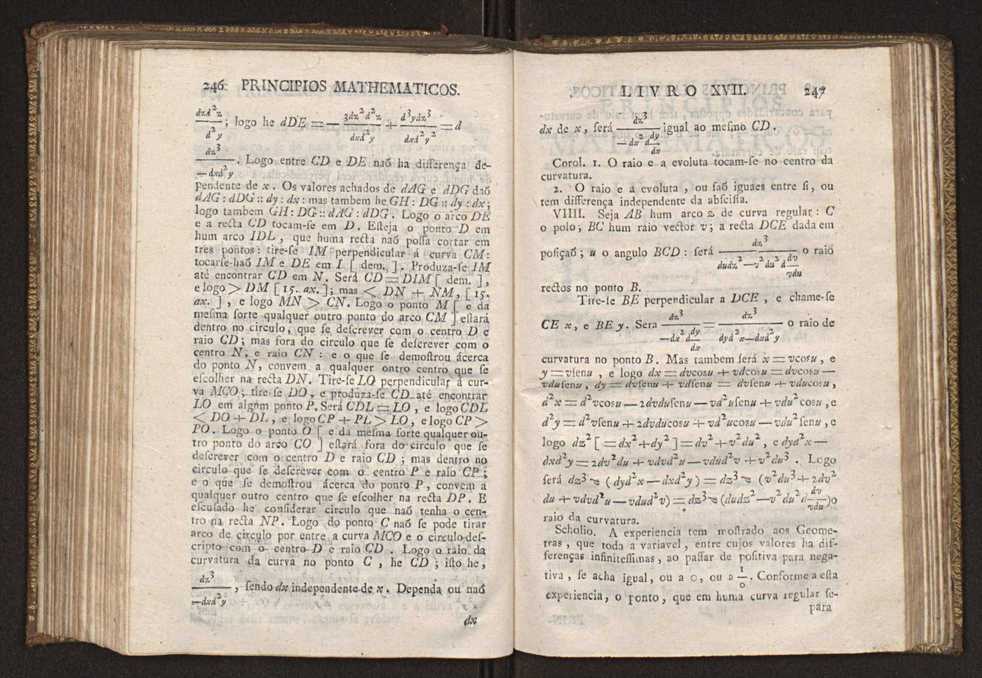 246 PRINCIPIOS MATHEMATICOS.
dzd²z / d²y ; logo he dDE = — 3dz²d²z / dxd²y + d³ydz³ / dxd²y² = d
dz³ / —dxd²y . Logo entre CD e DE naõ ha differença de-
pendente de x . Os valores achados de dAG e dDG daõ
dAG : dDG :: dy : dx : mas tambem he GH : DG :: dy : dx ;
logo tambem GH : DG :: dAG : dDG . Logo o arco DE
e a recta CD tocam-se em D . Esteja o ponto D em
hum arco IDL , que huma recta naõ possa cortar em
tres pontos : tire-se IM perpendicular á curva CM :
tocarse-haõ IM e DE em I [ dem. ] . Produza-se IM
até encontrar CD em N . Será CD = DIM [ dem. ] ,
e logo > DM [ 15. ax. ] ; mas < DN + NM , [ 15.
ax. ] , e logo MN > CN . Logo o ponto M [ e da
mesma sorte qualquer outro ponto do arco CM ] estará
dentro no circulo , que se descrever com o centro D e
raio CD ; mas fora do circulo que se descrever com o
centro N , e raio CN : e o que se demostrou ácerca
do ponto N , convem a qualquer outro centro que se
escolher na recta DN . Tire-se LO perpendicular á cur-
va MCO ; tire-se DO , e produza-se CD até encontrar
LO em algum ponto P . Será CDL = LO , e logo CDL
< DO + DL , e logo CP + PL > LO , e logo CP >
PO . Logo o ponto O [ e da mesma sorte qualquer ou-
tro ponto do arco CO ] estará fora do circulo que se
descrever com o centro D e raio CD ; mas dentro no
circulo que se descrever com o centro P e raio CP ;
e o que se demostrou ácerca do ponto P , convem a
qualquer outro centro que se escolher na recta DP . E
escusado he considerar circulo que naõ tenha o cen-
tro na recta NP . Logo do ponto C naõ se pode tirar
arco de circulo por entre a curva MCO e o circulo des-
cripto com o centro D e raio CD . Logo o raio da
curvatura da curva no ponto C , he CD ; isto he ,
dz³ / —dxd²y , sendo dx independente de x . Dependa ou naõ
dx
LIVRO XVII. 247
dx de x , será dz³ / —dx²d dy/dx igual ao mesmo CD .
Corol. 1. O raio e a evoluta tocam-se no centro da
curvatura.
2. O raio e a evoluta , ou saõ iguaes entre si , ou
tem differença independente da abscissa.
VIIII. Seja AB hum arco z de curva regular : C
o polo ; BC hum raio vector v ; a recta DCE dada em
posiçaõ ; u o angulo BCD : será dz³ / dudz²—v²du²d dv/vdu o raio
rectos no ponto B.
Tire-se BE perpendicular a DCE , e chame-se
CE x , e BE y . Sera dz³ / —dx²d dy/dx = dz³ / dyd²x—dxd²y o raio de
curvatura no ponto B . Mas tambem será x = vcosu , e
y = vsenu , e logo dx = dvcosu + vdcosu = dvcosu —
vdusenu , dy = dvsenu + vdsenu = dvsenu + vducosu ,
d²x = d²vcosu — 2dvdusenu — vd²usenu + vdu²cosu , e
d²y = d²vsenu + 2dvducosu + vd²ucosu — vdu²senu , e
logo dz² [ = dx² + dy² ] = dv² + v²du² , e dyd²x —
dxd²y = 2dv²du + vdvd²u — vdud²v + v²du³ . Logo
será dz³ ÷ ( dyd²x — dxd²y ) = dz³ ÷ ( v²du³ + 2dv²
du + vdvd²u — vdud²v ) = dz³ ÷ ( dudz² — v²du²d dv/vdu ) o
raio da curvatura.
Scholio. A experiencia tem mostrado aos Geome-
tras , que toda a variavel , entre cujos valores ha dif-
ferenças infinitessimas , ao passar de positiva para nega-
tiva , se acha igual , ou a 0 , ou a 1/0 . Conforme a esta
experiencia , o ponto , que em huma curva regular se-
para